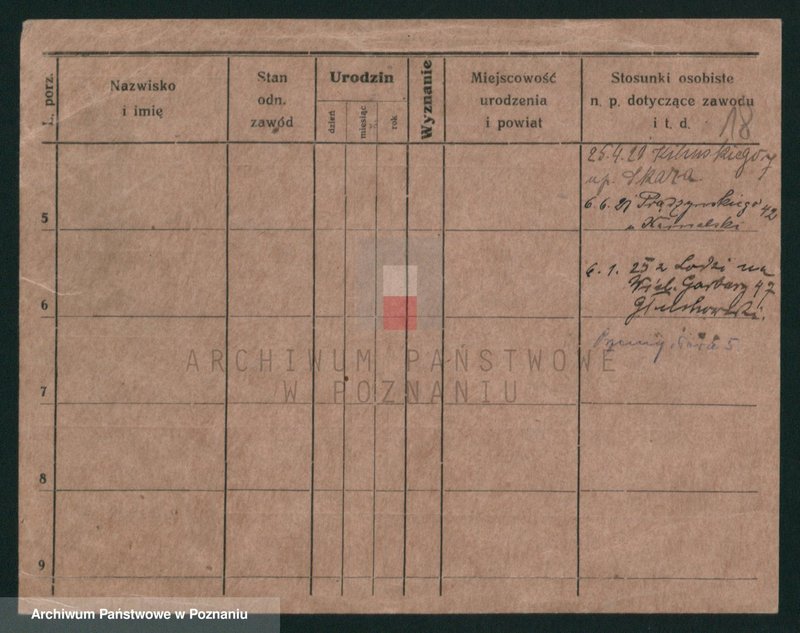 L. porz.
Nazwisko
i imię
Stan
odn.
zawód
Urodzin
dzień
miesiąc
rok
Wyznanie
Miejscowość
urodzenia
i powiat
Stosunki osobiste
n. p. dotyczące zawodu
i t. d.
18
25.4.21
u p. Skóra
5
6.6.21 Prądzyńskiego 42
6
6.1.25 z Łodzi na
Wiel. Garbary 47
Głuchowski.
5
ARCHIWUM PAŃSTWOWE
W POZNANIU
7
8
9
Archiwum Państwowe w Poznaniu